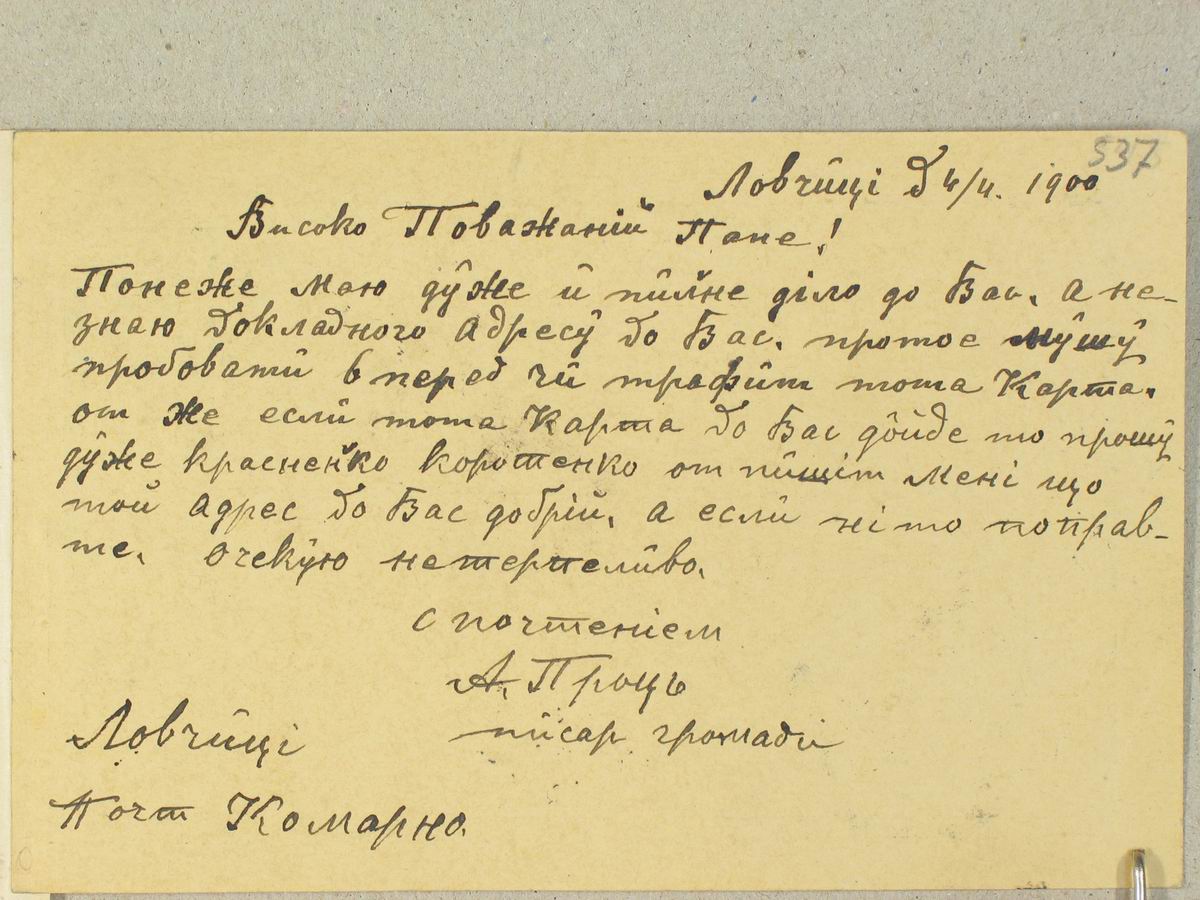 537
Ловчиці д 4/4. 1900
Високо Поважаній Пане!
Понеже маю дуже й пилне діло до Вас, а не-
знаю докладного адресу до Вас, протое мушу
пробовати вперед чи трафит тота Карта.
от же если тота Карта до Вас дойде то прошу
дуже красненько коротенко от пишіт мені що
той адрес до Вас добрій, а если ні то поправ-
те. Очекую нетерпеливо.
С почтеніем
А. Проць
писар громади
Ловчиці
Почт Комарно